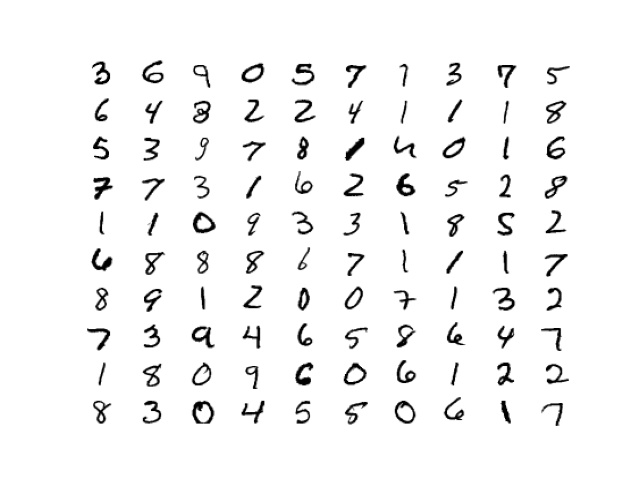 3 6 9 0 5 7 1 3 7 5
6 4 8 2 2 4 1 1 1 8
5 3 9 7 8 1 4 0 1 6
7 7 3 1 6 2 6 5 2 8
1 1 0 9 3 3 1 8 5 2
6 8 8 8 6 7 1 1 1 7
8 9 1 2 0 0 7 1 3 2
7 3 9 4 6 5 8 6 4 7
1 8 0 9 6 0 6 1 2 2
8 3 0 4 5 5 0 6 1 7